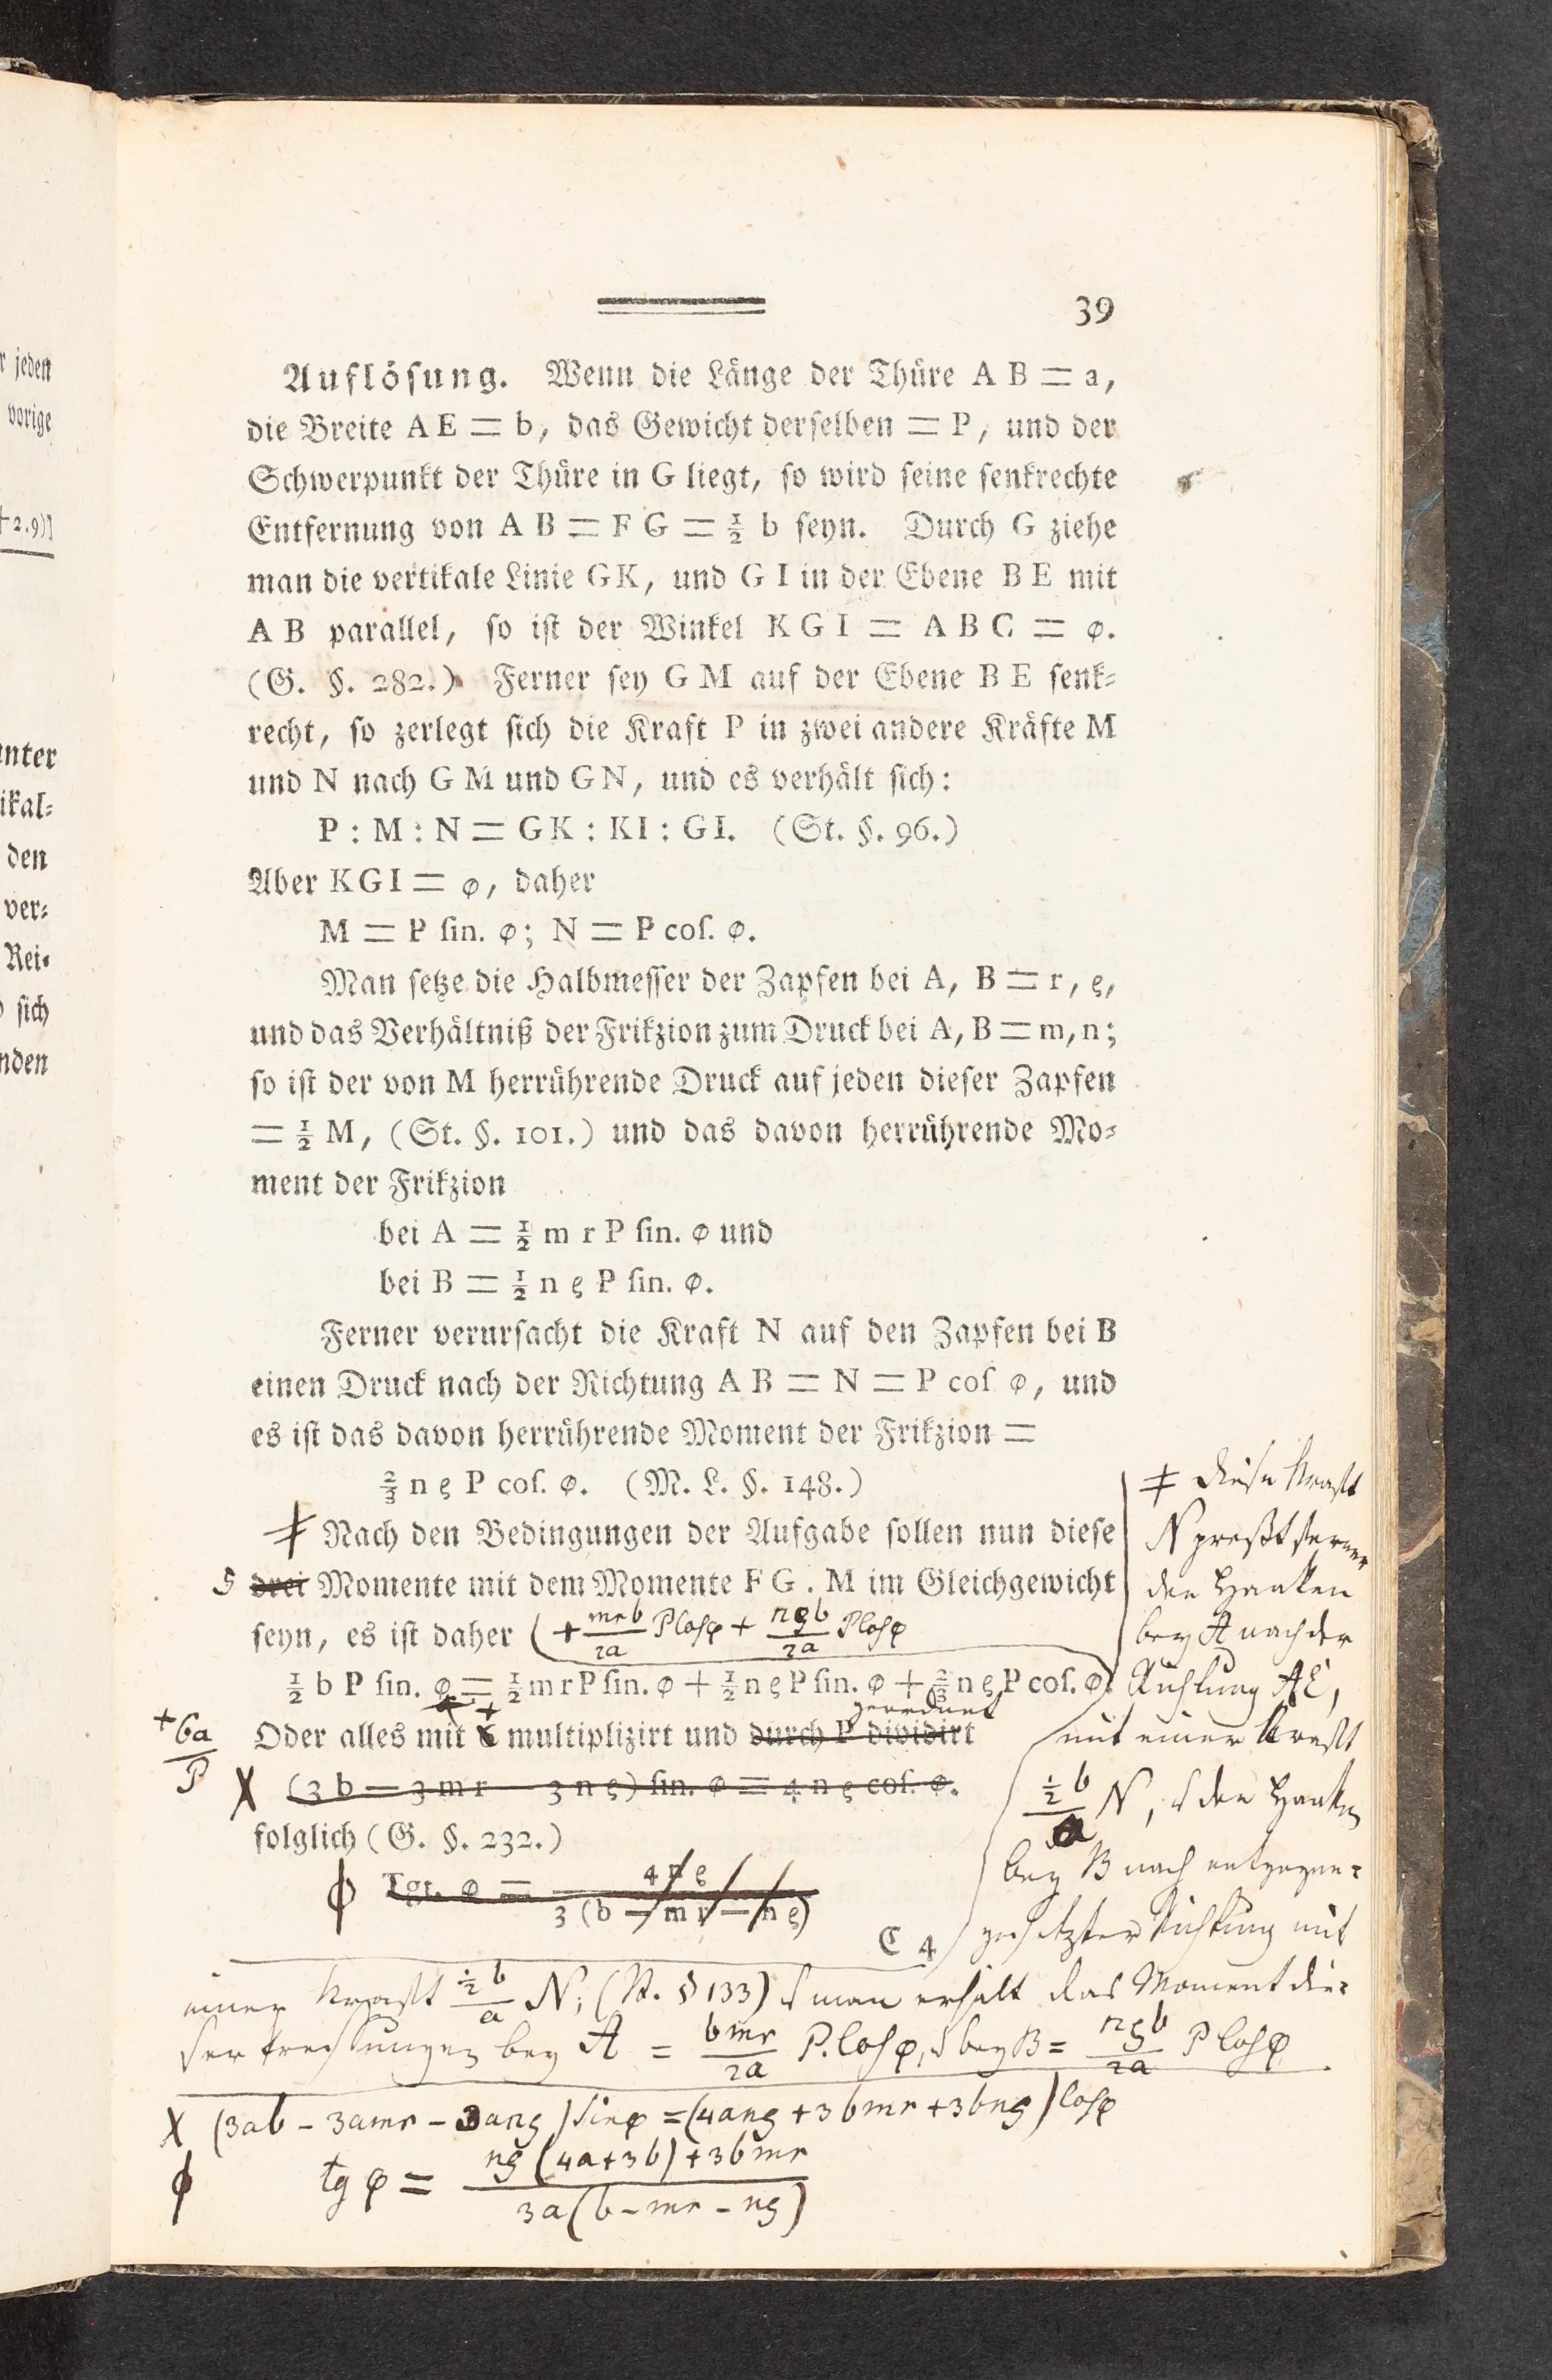 39
Auflösung. Wenn die Länge der Thüre A B = a,
die Breite A E = b, das Gewicht derselben = P, und der
Schwerpunkt der Thüre in G liegt, so wird seine senkrechte
Entfernung von A B = F G = ½ b seyn. Durch G ziehe
man die vertikale Linie G K, und G I in der Ebene B E mit
A B parallel, so ist der Winkel K G I = A B C = φ.
(G. §. 282.) Ferner sey G M auf der Ebene B E senk-
recht, so zerlegt sich die Kraft P in zwei andere Kräfte M
und N nach G M und G N, und es verhält sich:
P : M : N = G K : K I : G I. (St. §. 96.)
Aber K G I = φ, daher
M = P ſin. φ; N = P coſ. φ.
Man setze die Halbmesser der Zapfen bei A, B = r, ρ,
und das Verhältniß der Frikzion zum Druck bei A, B = m, n;
so ist der von M herrührende Druck auf jeden dieser Zapfen
= ½ M, (St. §. 101.) und das davon herrührende Mo-
ment der Frikzion
bei A = ½ m r P ſin. φ und
bei B = ½ n ρ P ſin. φ.
Ferner verursacht die Kraft N auf den Zapfen bei B
einen Druck nach der Richtung A B = N = P coſ φ, und
es ist das davon herrührende Moment der Frikzion =
⅔ n ρ P coſ. φ. (M. L. §. 148.)
Nach den Bedingungen der Aufgabe sollen nun diese
5 drei Momente mit dem Momente F G . M im Gleichgewicht
seyn, es ist daher (+ mrb/2a P cosφ + nρb/2a P cosφ
½ b P ſin. φ = ½ m r P ſin. φ + ½ n ρ P ſin. φ + ⅔ n ρ P coſ. φ)
geordnet
+ 6a/P Oder alles mit 6 multiplizirt und durch P dividirt
X (3 b — 3 m r — 3 n ρ) ſin. φ = 4 n ρ coſ. φ.
folglich (G. §. 232.)
ϕ Tgt. φ = 4 n ρ / 3 (b — m r — n ρ)
C 4
≠ diese Kraft
N preßt ferner
den Haaken
bey A nach der
Richtung AE,
mit einer Kraft
½b/a N, & den Haaken
bey B nach entgegen-
gesetzter Richtung mit
einer Kraft ½b/a N; (St. § 133) & man erhält das Moment die-
ser bey A = bmr/2a P. cosφ, & bey B = nρb/2a P cosφ.
X (3ab - 3amr - 3anρ) sinφ = (4anρ + 3bmr + 3bnρ) cosφ
ϕ tg φ = nρ(4a+3b)+3bmr / 3a(b-mr-nρ)